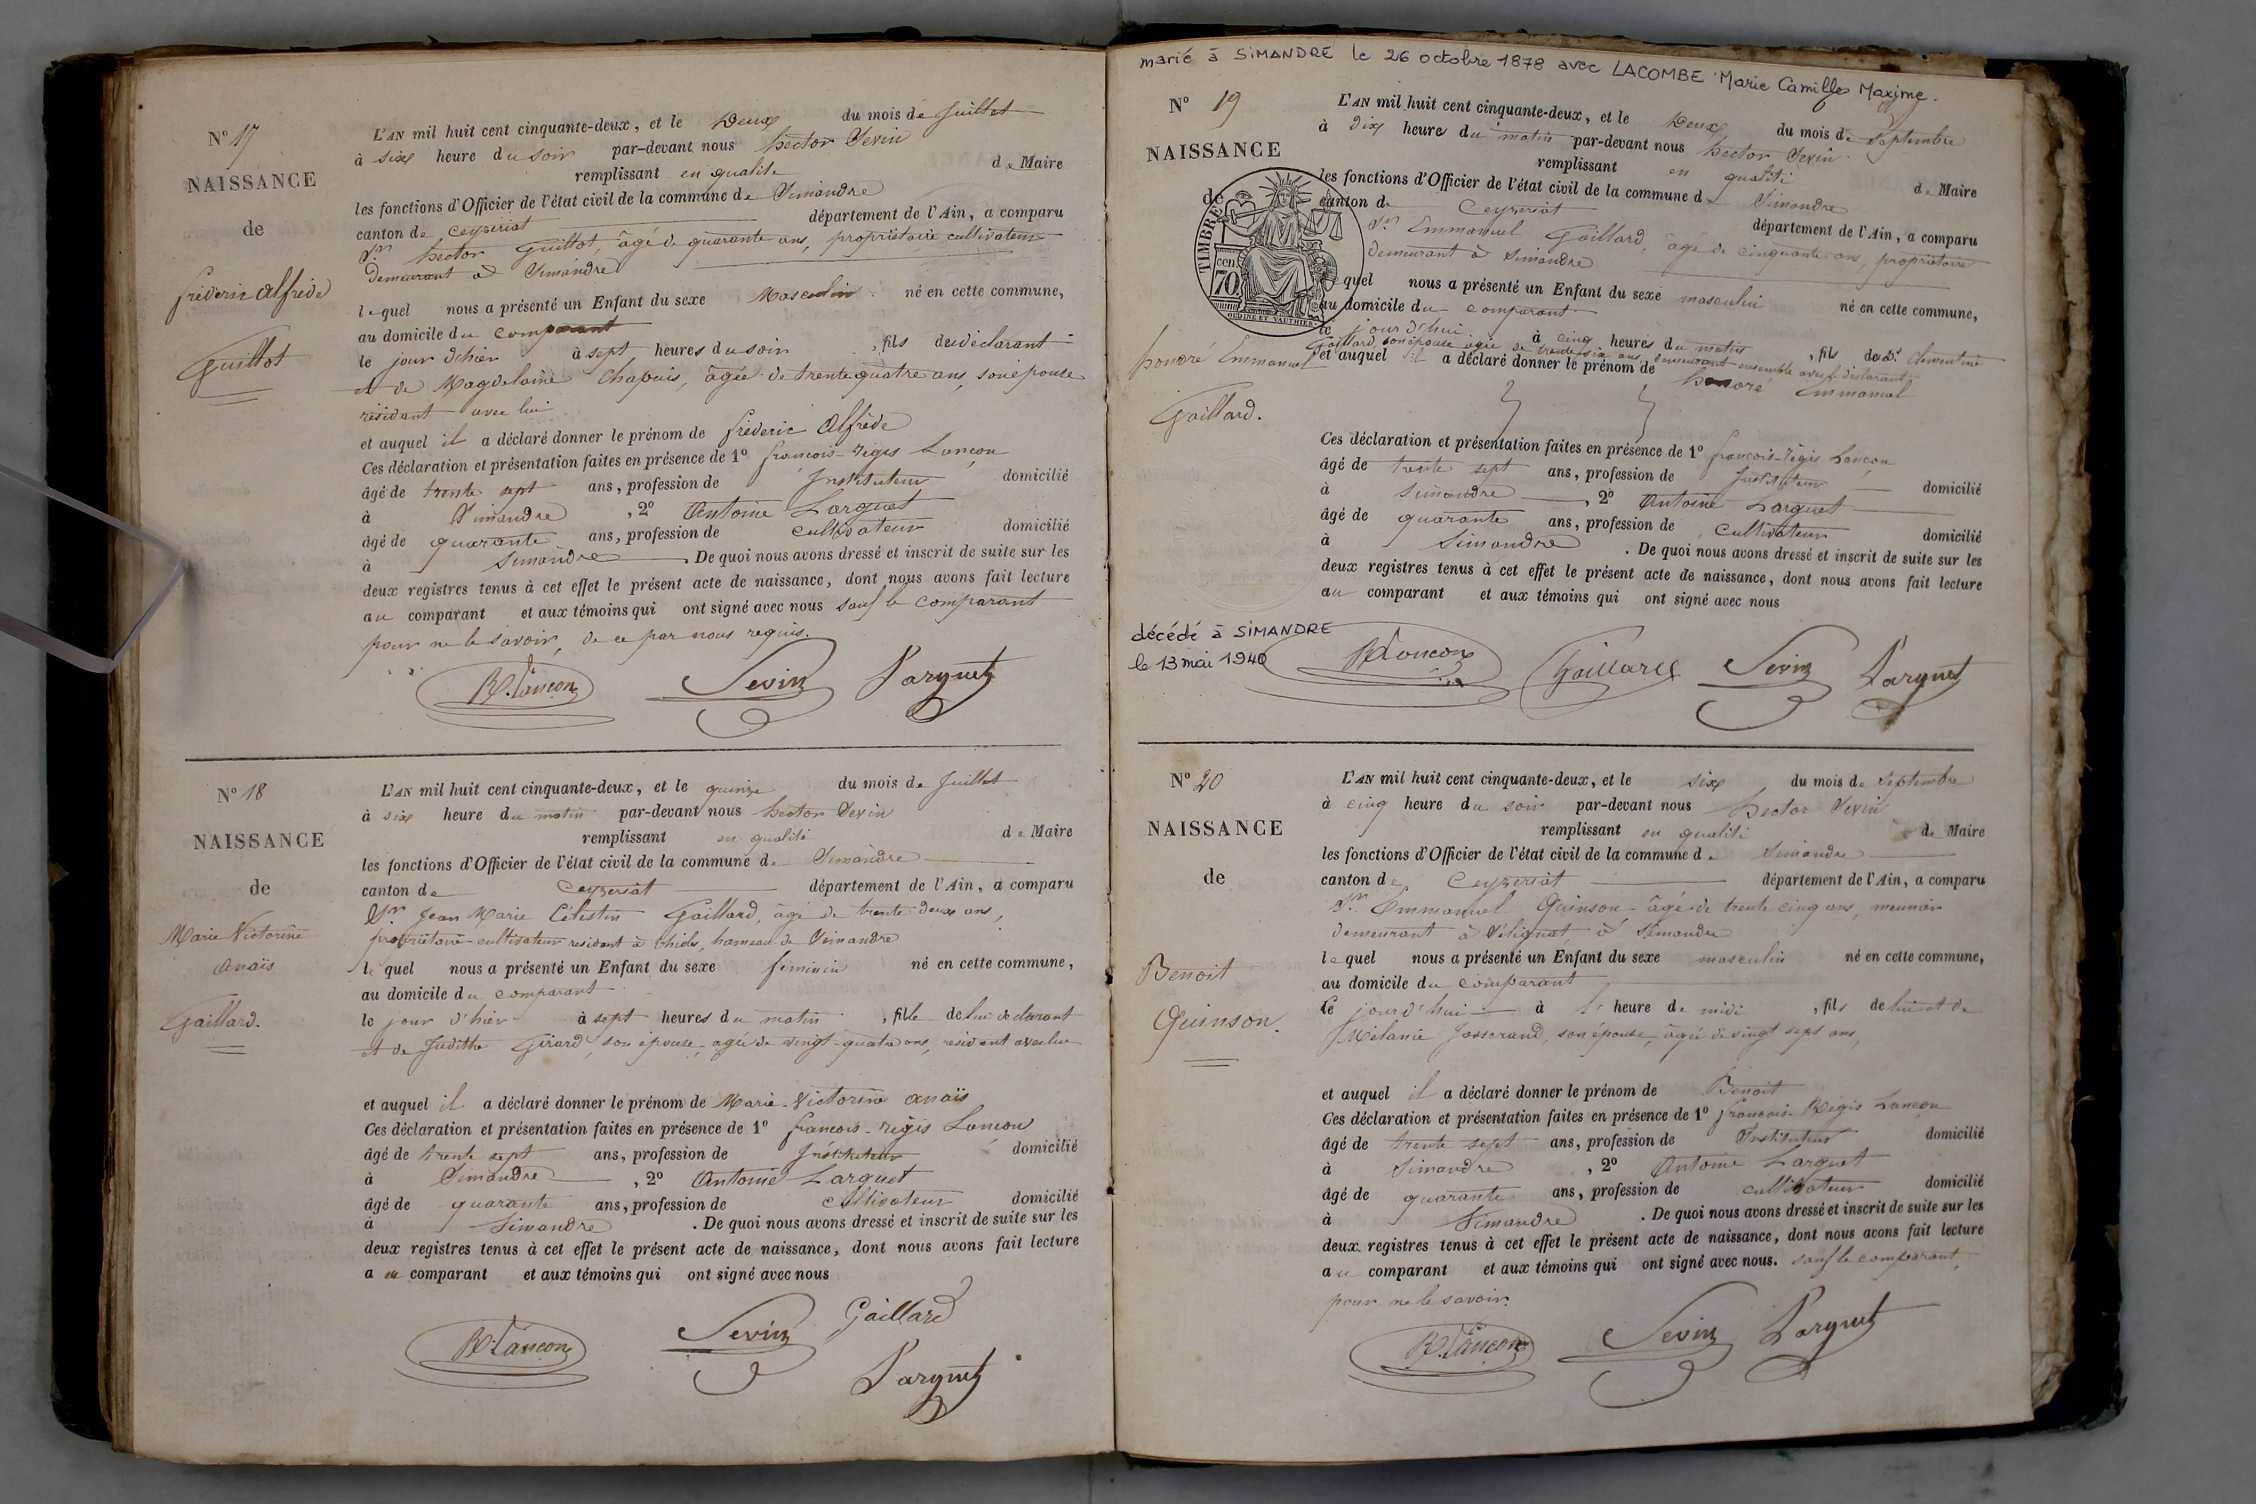 N° 17
NAISSANCE
de
fréderic Alfrède
Guillot
L'AN mil huit cent cinquante-deux, et le Deux du mois de Juillet
à six heure du soir par-devant nous hector Sevin
remplissant en qualité de Maire
les fonctions d'Officier de l'état civil de la commune de Simandre
canton de Ceyzeriat département de l'Ain, a comparu
Sr hector Guillot, âgé de quarante ans, propriétaire cultivateur
demeurant à Simandre
lequel nous a présenté un Enfant du sexe Masculin né en cette commune,
au domicile du comparant
le jour d'hier à sept heures du soir, fils du déclarant
et de Magdelaine Chapuis, âgée de trente quatre ans, son épouse
résidant avec lui
et auquel il a déclaré donner le prénom de fréderic Alfrède
Ces déclaration et présentation faites en présence de 1° françois-régis Lançon
âgé de trente sept ans, profession de Instituteur domicilié
à Simandre, 2° Antoine Larguet
âgé de quarante ans, profession de cultivateur domicilié
à Simandre. De quoi nous avons dressé et inscrit de suite sur les
deux registres tenus à cet effet le présent acte de naissance, dont nous avons fait lecture
au comparant et aux témoins qui ont signé avec nous sauf le comparant
pour ne le savoir, de ce par nous requis.
R. Lançon Sevin Larguet
N° 18
NAISSANCE
de
Marie Victorine
Anaïs
Gaillard.
L'AN mil huit cent cinquante-deux, et le quinze du mois de Juillet
à six heure du matin par-devant nous hector Sevin
remplissant en qualité de Maire
les fonctions d'Officier de l'état civil de la commune de Simandre
canton de Ceyzeriat département de l'Ain, a comparu
Sr Jean Marie Célestin Gaillard, âgé de trente deux ans,
propriétaire-cultivateur résidant à hameau de Simandre
lequel nous a présenté un Enfant du sexe féminin né en cette commune,
au domicile du comparant
le jour d'hier à sept heures du matin, fille de lui déclarant
et de Judithe Girard, son épouse, agée de vingt-quatre ans, résidant avec lui
et auquel il a déclaré donner le prénom de Marie-Victorine Anaïs
Ces déclaration et présentation faites en présence de 1° françois-régis Lançon
âgé de trente sept ans, profession de Instituteur domicilié
à Simandre, 2° Antoine Larguet
âgé de quarante ans, profession de cultivateur domicilié
à Simandre. De quoi nous avons dressé et inscrit de suite sur les
deux registres tenus à cet effet le présent acte de naissance, dont nous avons fait lecture
au comparant et aux témoins qui ont signé avec nous
R. Lançon Sevin Gaillard
Larguet
marié à SIMANDRE le 26 octobre 1878 avec LACOMBE Marie Camille Maxime.
N° 19
NAISSANCE
de
TIMBRE
cen
70
honoré Emmanuel
Gaillard.
L'AN mil huit cent cinquante-deux, et le Deux du mois de Septembre
à Dix heure du matin par-devant nous hector Sevin
remplissant en qualité de Maire
les fonctions d'Officier de l'état civil de la commune de Simandre
canton de Ceyzeriat département de l'Ain, a comparu
Sr Emmanuel Gaillard, âgé de cinquante ans, propriétaire
demeurant à Simandre
lequel nous a présenté un Enfant du sexe masculin né en cette commune,
au domicile du comparant
le jour d'hui à cinq heures du matin, fils de De Clementine
Gaillard, son épouse agée de trente six ans, demeurant ensemble avec le déclarant
et auquel il a déclaré donner le prénom de honoré Emmanuel
Ces déclaration et présentation faites en présence de 1° françois-régis Lançon
âgé de trente sept ans, profession de Instituteur domicilié
à Simandre, 2° Antoine Larguet
âgé de quarante ans, profession de cultivateur domicilié
à Simandre. De quoi nous avons dressé et inscrit de suite sur les
deux registres tenus à cet effet le présent acte de naissance, dont nous avons fait lecture
au comparant et aux témoins qui ont signé avec nous
décédé à SIMANDRE
le 13 mai 1940
R Lançon Gaillard Sevin Larguet
N° 20
NAISSANCE
de
Benoit
Quinson.
L'AN mil huit cent cinquante-deux, et le six du mois de Septembre
à cinq heure du soir par-devant nous hector Sevin
remplissant en qualité de Maire
les fonctions d'Officier de l'état civil de la commune de Simandre
canton de Ceyzeriat département de l'Ain, a comparu
Sr Emmanuel Quinson, âgé de trente cinq ans, meunier
demeurant à Sélignat, à Simandre
lequel nous a présenté un Enfant du sexe masculin né en cette commune,
au domicile du comparant
le jourd'hui à l' heure de midi, fils de lui et de
Mélanie Josserand, son épouse, âgée de vingt sept ans,
et auquel il a déclaré donner le prénom de Benoit
Ces déclaration et présentation faites en présence de 1° françois-Régis Lançon
âgé de trente sept ans, profession de Instituteur domicilié
à Simandre, 2° Antoine Larguet
âgé de quarante ans, profession de cultivateur domicilié
à Simandre. De quoi nous avons dressé et inscrit de suite sur les
deux registres tenus à cet effet le présent acte de naissance, dont nous avons fait lecture
au comparant et aux témoins qui ont signé avec nous. sauf le comparant,
pour ne le savoir.
R. Lançon Sevin Larguet